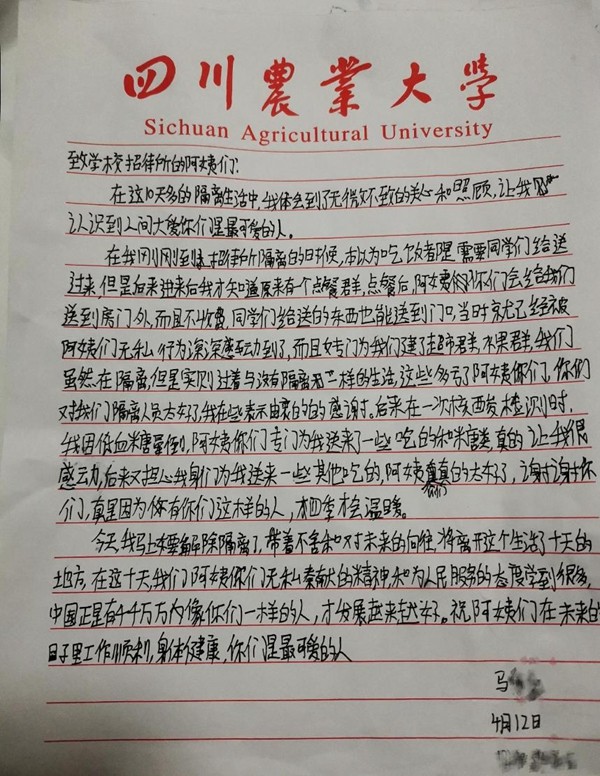 四川農業大學
Sichuan Agricultural University
致学校招待所的阿姨们:
在这10天多的隔离生活中,我体会到了无微不致的关心和照顾,让我
认识到人间大爱你们是最可爱的人。
在我刚刚到招待所隔离的时候,本以为吃饭都是需要同学们给送
过来,但是后来进来后我才知道原来有个点餐群,点餐后,阿姨你们会给我们
送到房门外,而且不收费,同学们给送的东西也能送到门口,当时就已经被
阿姨们无私行为深深感动到了,而且专门为我们建了超市群,水果群,我们
虽然在隔离,但是实则过着与没有隔离一样的生活,这些多亏了阿姨你们,你们
对我们隔离人员太好了,我在些表示由衷的的感谢。后来在一次核酸检测时,
我因低血糖晕倒,阿姨你们专门为我送来了一些吃的和糖类,真的让我很
感动,后来又担心我身们为我送来一些其他吃的,阿姨你们真的太好了,谢谢你
们,真是因为有你们这样的人,本四季才会温暖。
今天我马上要解除隔离了,带着不舍和对未来的向往,将离开这个生活了十天的
地方,在这十天我们阿姨你们无私奉献的精神和为人民服务的态度学到很多,
中国正是有千千万万内像你们一样的人,才发展越来越好。祝阿姨们在未来的
日子里工作顺利,身体健康,你们是最可爱的人
马
4月12日